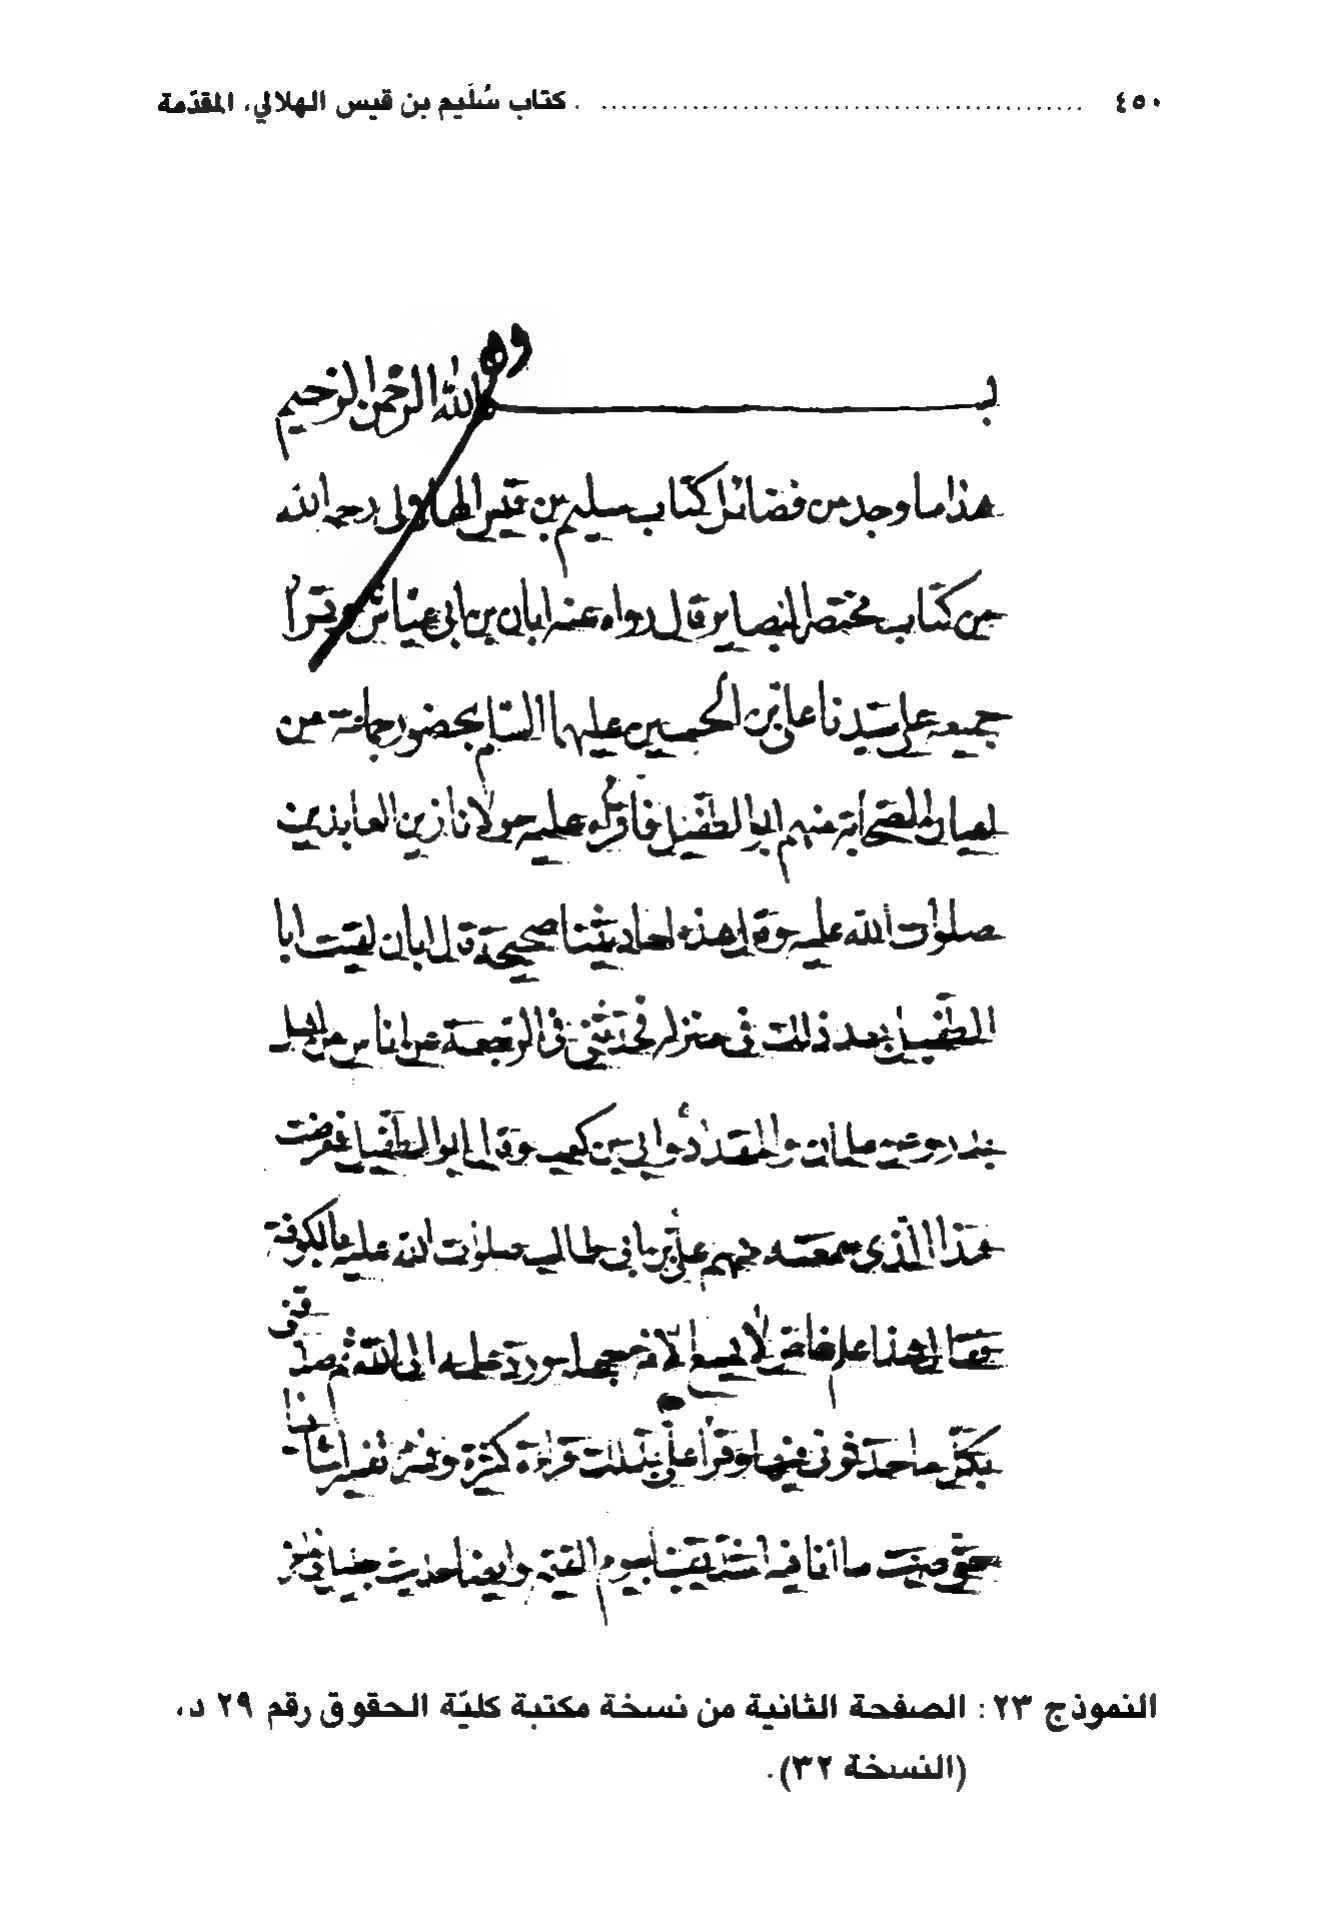 ٤٥٠ ........................ كتاب سُلَيم بن قيس الهلالي، المقدّمة
بسم الله الرحمن الرحيم
هذا ما وجد من فضائل كتاب سليم بن قيس الهلالى رحمه الله
من كتاب مختصر البصاير قال رواه عنه ابان بن ابى عياش وقرأ
جميعه على سيدنا على بن الحسين عليهما السلم بحضور جماعة من
اعيان الصحابة منهم ابو الطفيل فاقره عليه مولانا زين العابدين
صلوات الله عليه وقال هذه احاديثنا صحيحة قال ابان لقيت ابا
الطفيل بعد ذلك فى منزله فحدثنى فى الرجعة عن اناس من اهل
بدر وعن سلمان والمقداد وابى بن كعب وقال ابو الطفيل فعرضت
هذا الذى سمعته منهم على بن ابى طالب صلوات الله عليه بالكوفة
فقال هذا علم خاص لا يسع الامة جهله ورد علمه الى الله ثم صدقنى
بكل ما حدثونى فيها وقرأ على بذلك قراءة كثيرة وفسره تفسيرا شافيا
حتى صرت ما انا فيه اشد يقينا بيوم القيمة وايضا
النموذج ٢٣: الصفحة الثانية من نسخة مكتبة كليّة الحقوق رقم ٢٩ د،
(النسخة ٣٢).